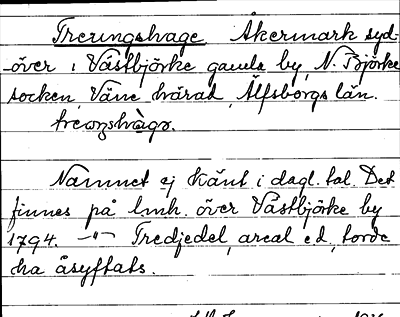 Treungshage Åkermark syd-
över i Västbjörke gamla by, N. Björke
socken, Väne härad, Älfsborgs län.
Namnet ej känt i dagl. tal. Det
finnes på lmh. över Västbjörke by
1794. —"— Tredjedel, areal ed, torde
ha åsyftats.